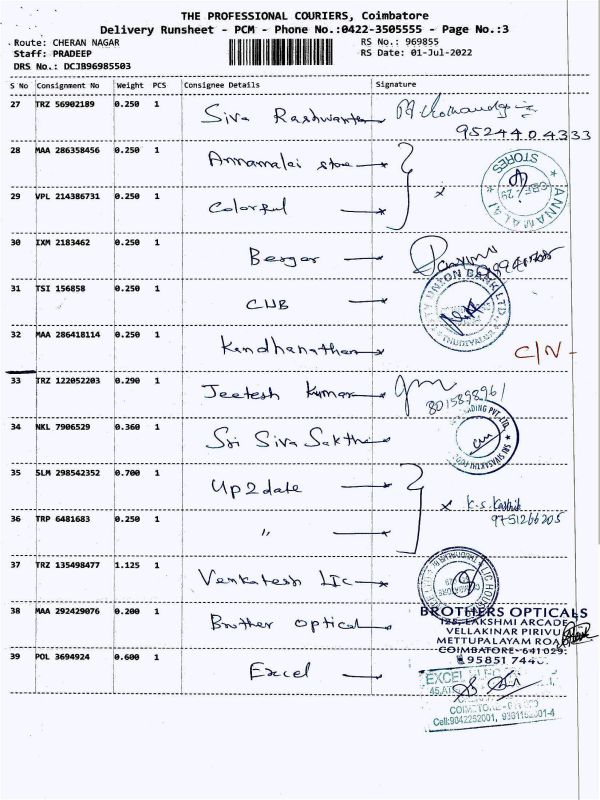 THE PROFESSIONAL COURIERS, Coimbatore
Delivery Runsheet - PCM - Phone No.:0422-3505555 - Page No.:3
Route: CHERAN NAGAR RS No.: 969855
Staff: PRADEEP RS Date: 01-Jul-2022
DRS No.: DCJB96985503
S No Consignment No Weight PCS Consignee Details Signature
27 TRZ 56902189 0.250 1 Siva Rashwanter
9524404333
28 MAA 286358456 0.250 1 Annamalai store
ANNAMALAI STORES
CBE-29
29 VPL 214386731 0.250 1 Colorful x
30 IXM 2183462 0.250 1 Berger
31 TSI 156858 0.250 1 CUB
CITY UNION BANK LTD.,
THUDIYALUR
32 MAA 286418114 0.250 1 Kandhanathan
C/N -
33 TRZ 122052203 0.290 1 Jeetesh Kumar
8015898961
34 NKL 7906529 0.360 1 Sri Siva Sakthi
TRADING PVT. LTD.
SRI SIVASAKTHI
35 SLM 298542352 0.700 1 Up2date
x K.S. Karthik
9751266205
36 TRP 6481683 0.250 1 "
37 TRZ 135498477 1.125 1 Venkatesh LIC
38 MAA 292429076 0.200 1 Brother optical
BROTHERS OPTICALS
128, LAKSHMI ARCADE
VELLAKINAR PIRIVU
METTUPALAYAM ROAD
COIMBATORE-641029.
95851 744
39 POL 3694924 0.600 1 Excel
EXCEL
Cell:9042252001,